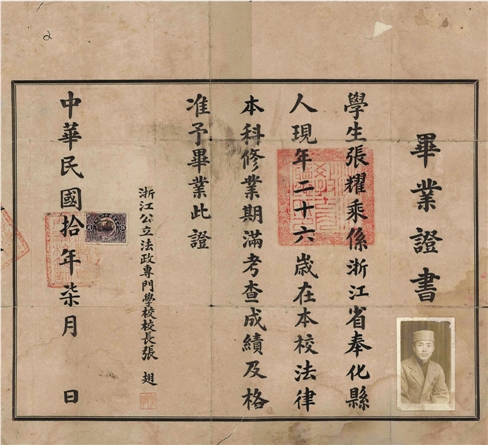 畢業證書
學生張耀乘係浙江省奉化縣
人現年二十六歲在本校法律
本科修業期滿考查成績及格
准予畢業此證
浙江公立法政專門學校校長張
中華民國拾年柒月 日